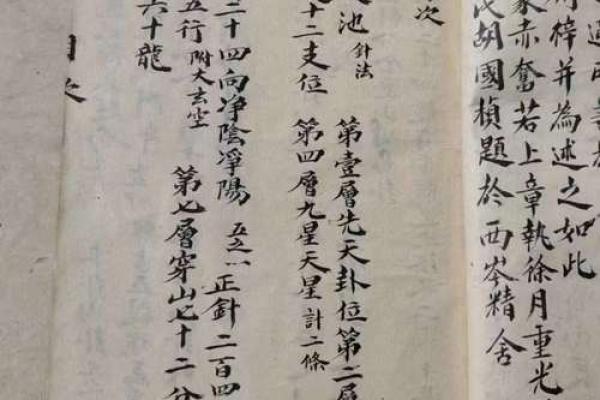 梓并為述之如此
赤奮若上章執徐月重光
胡國楨題於西岑精舍
次
池 針法
第壹層先天卦位第二層
十二支位
第四層九星天星 計二條
二十四向净陰淨陽 五之八 正針二百四
五行 附大玄空
第七層穿山七十二分
六十龍
目次